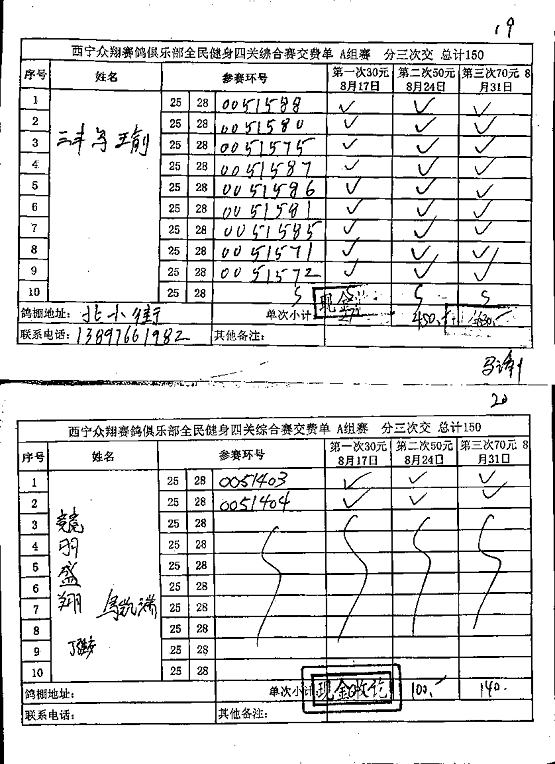 19
西宁众翔赛鸽俱乐部全民健身四关综合赛交费单 A组赛 分三次交 总计150
序号 姓名 参赛环号 第一次30元 8月17日 第二次50元 8月24日 第三次70元 8月31日
1 25 28 0051588 ✓ ✓ ✓
2 25 28 0051580 ✓ ✓ ✓
3 25 28 0051575 ✓ ✓ ✓
4 25 28 0051587 ✓ ✓ ✓
5 25 28 0051596 ✓ ✓ ✓
6 25 28 0051591 ✓ ✓ ✓
7 25 28 0051595 ✓ ✓ ✓
8 25 28 0051571 ✓ ✓ ✓
9 25 28 0051572 ✓ ✓ ✓
10 25 28
鸽棚地址: 北小 单次小计 现金 450.-
联系电话: 13897661982 其他备注:
20
西宁众翔赛鸽俱乐部全民健身四关综合赛交费单 A组赛 分三次交 总计150
序号 姓名 参赛环号 第一次30元 8月17日 第二次50元 8月24日 第三次70元 8月31日
1 25 28 0051403 ✓ ✓ ✓
2 25 28 0051404 ✓ ✓ ✓
3 25 28
4 羽 25 28
5 盛 25 28
6 翔 25 28
7 25 28
8 25 28
9 25 28
10 25 28
鸽棚地址: 单次小计 现金收讫 100.- 140.
联系电话: 其他备注: